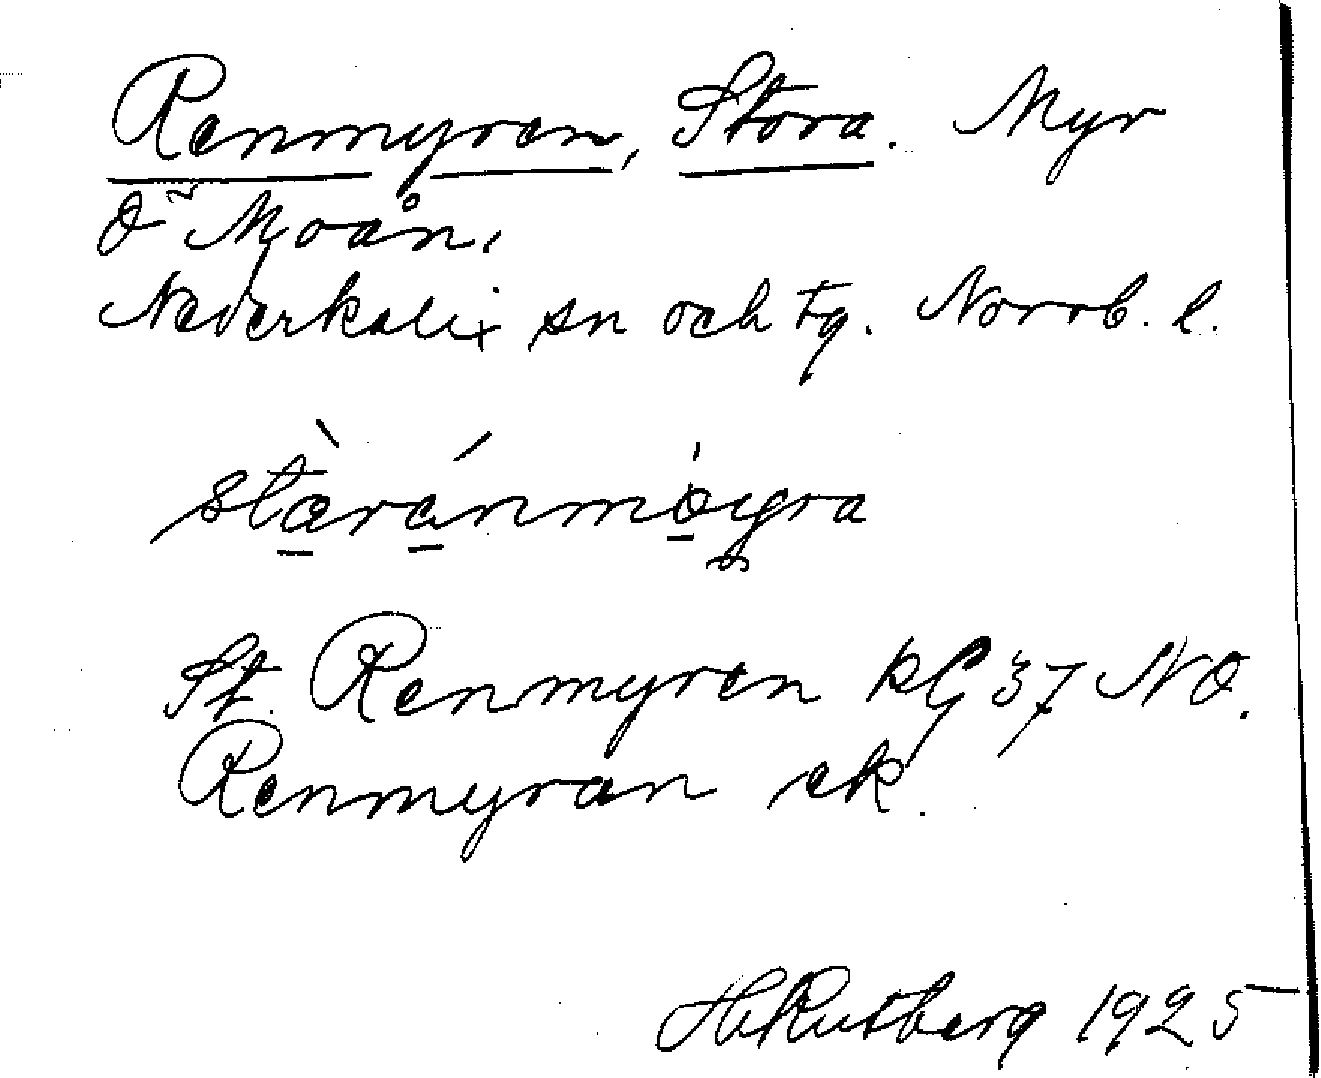 Renmyren, Stora. Myr
Ö Moån,
Nederkalix sn och tg. Norrb. l.
St. Renmyren kG 37 NO.
Renmyran ek.
H Rutberg 1925